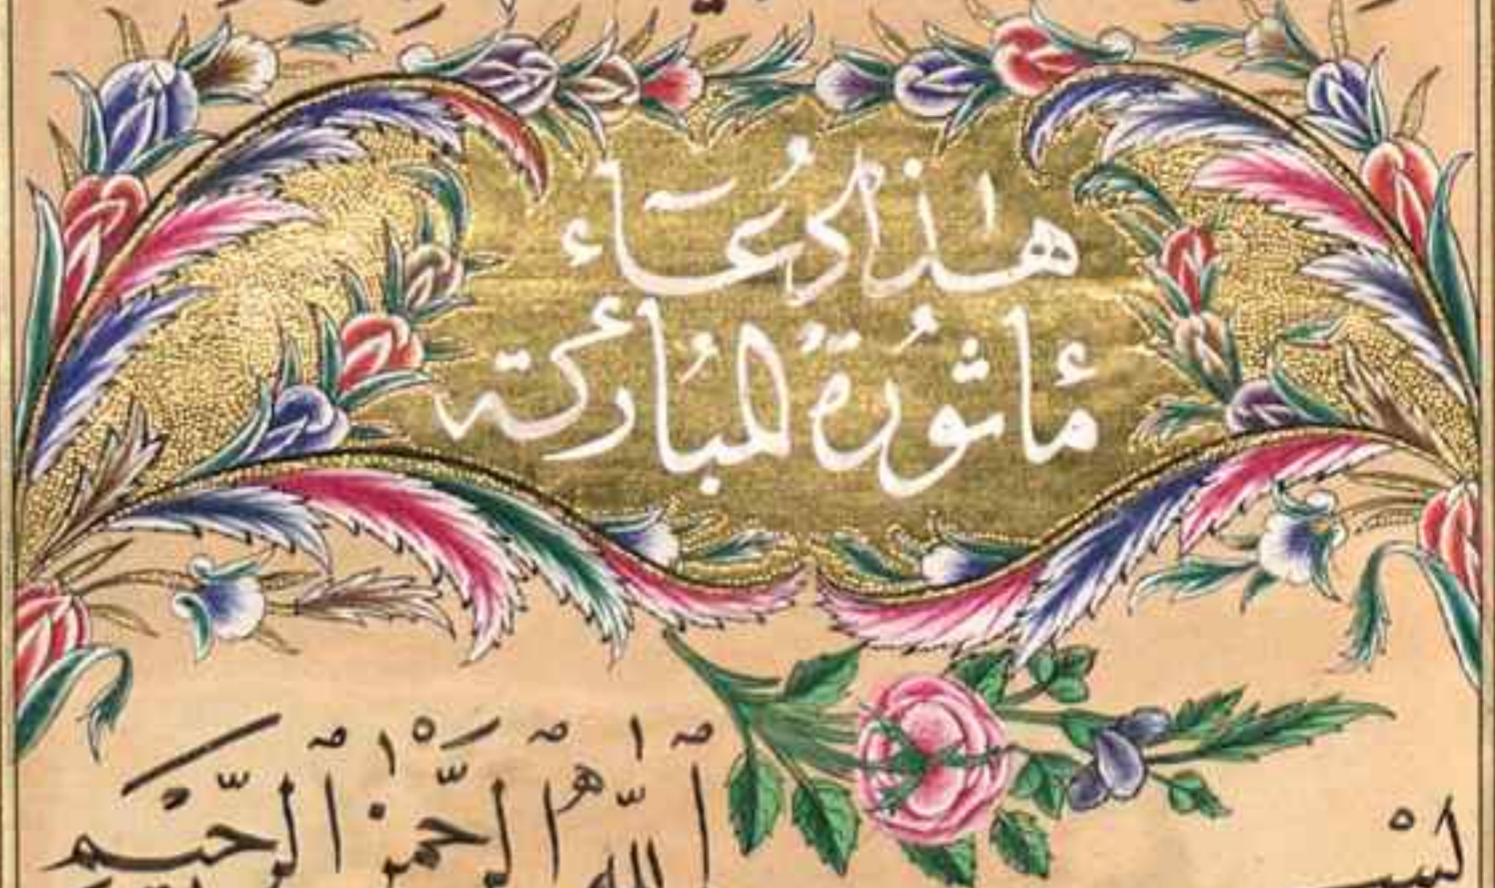 هٰذا الدُعَآء
مأثورة المُباركة
بسْم اللّٰه الرَّحْمٰن الرَّحيم